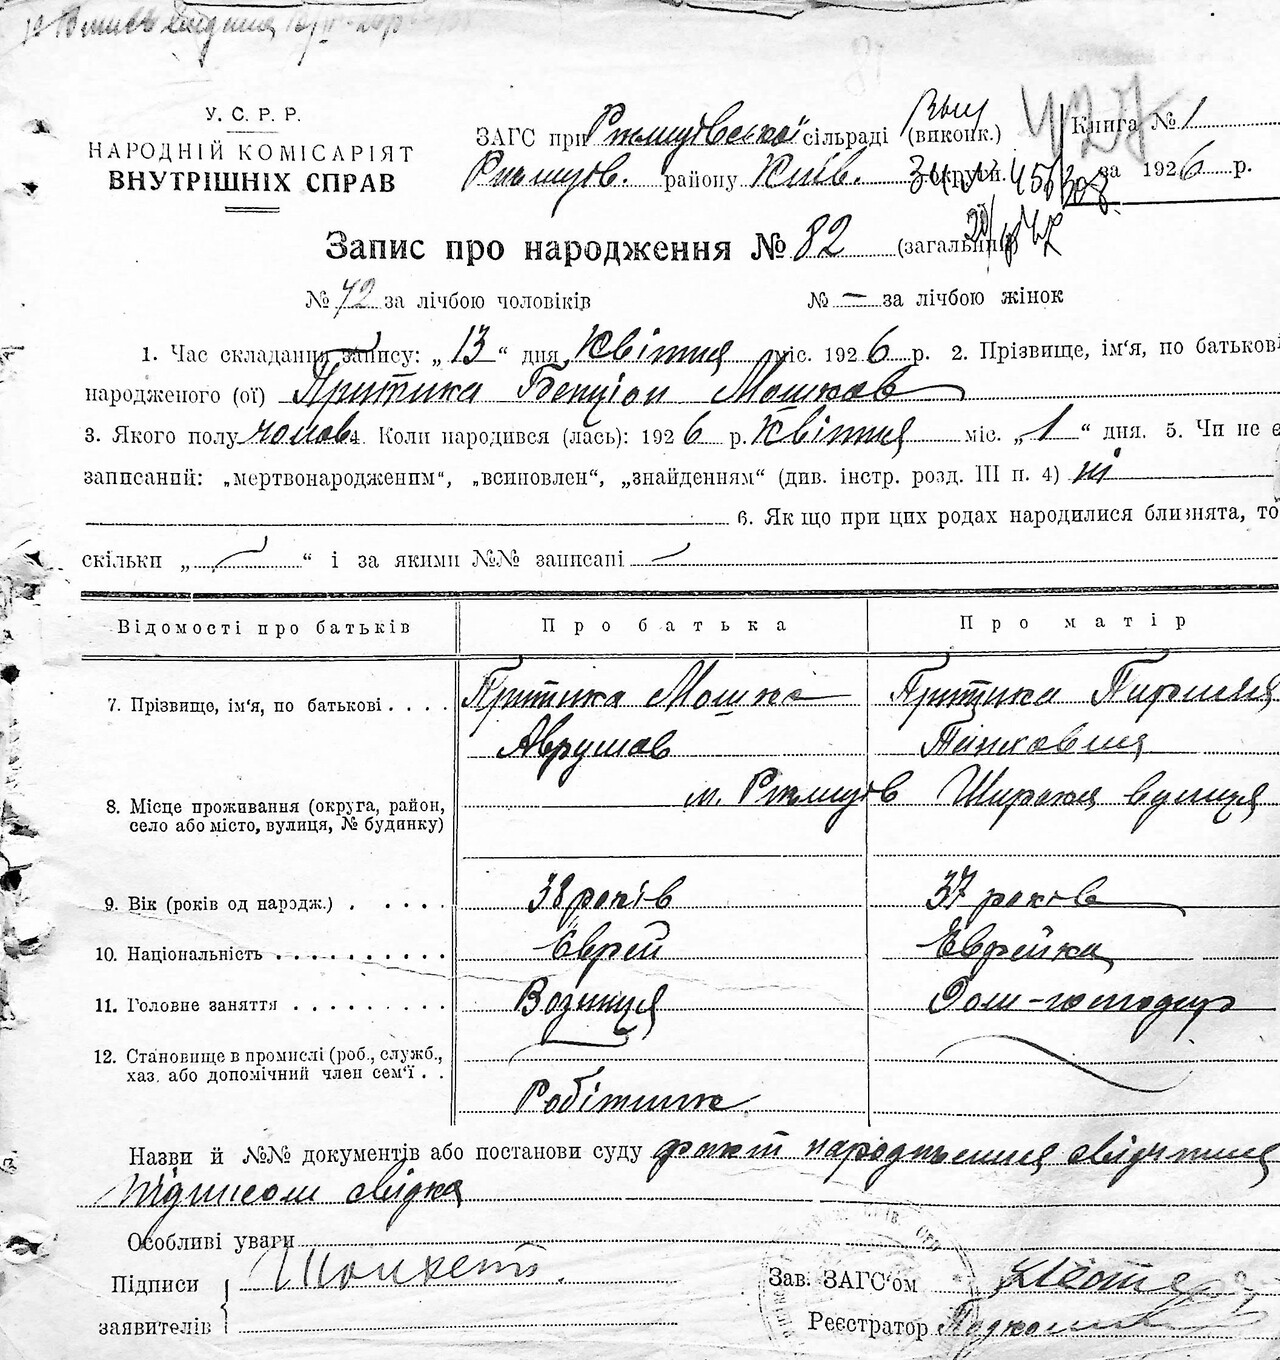 У. С. Р. Р.
НАРОДНІЙ КОМІСАРІЯТ
ВНУТРІШНІХ СПРАВ
ЗАГС при Ржищівської сільраді (виконк.) Книга № 1
Ржищів. району Київ. округи. за 1926 р.
Запис про народження № 82 (загальний)
№ 42 за лічбою чоловіків № — за лічбою жінок
1. Час складання запису: „13“ дня Квітня міс. 1926 р. 2. Прізвище, ім‘я, по батькові
народженого (ої) Притика Бенціон Мошков
3. Якого полу чолов. 4. Коли народився (лась): 1926 р. Квітня міс. „1“ дня. 5. Чи не є
записаний: „мертвонародженим“, „всиновлен“, „знайденням“ (див. інстр. розд. III п. 4) ні
6. Якщо при цих родах народилися близнята, то
скільки „—“ і за якими №№ записані —
Відомості про батьків Про батька Про матір
7. Прізвище, ім‘я, по батькові . . . . Притика Мошка Притика
Аврумов
8. Місце проживання (округа, район,
село або місто, вулиця, № будинку)
м. Ржищів Широка вулиця
9. Вік (років од народж.) . . . . . 38 років 37 років
10. Національність . . . . . . . . . . Єврей Єврейка
11. Головне заняття . . . . . . . . Візниця Дом-господар
12. Становище в промислі (роб., служб.,
хаз. або допомічний член сем‘ї . .
Робітник
Назви й №№ документів або постанови суду факт народження свідчиння
підписом свідка
Особливі уваги
Підписи
заявителів
Шойхет.
Зав. ЗАГС‘ом
Реєстратор